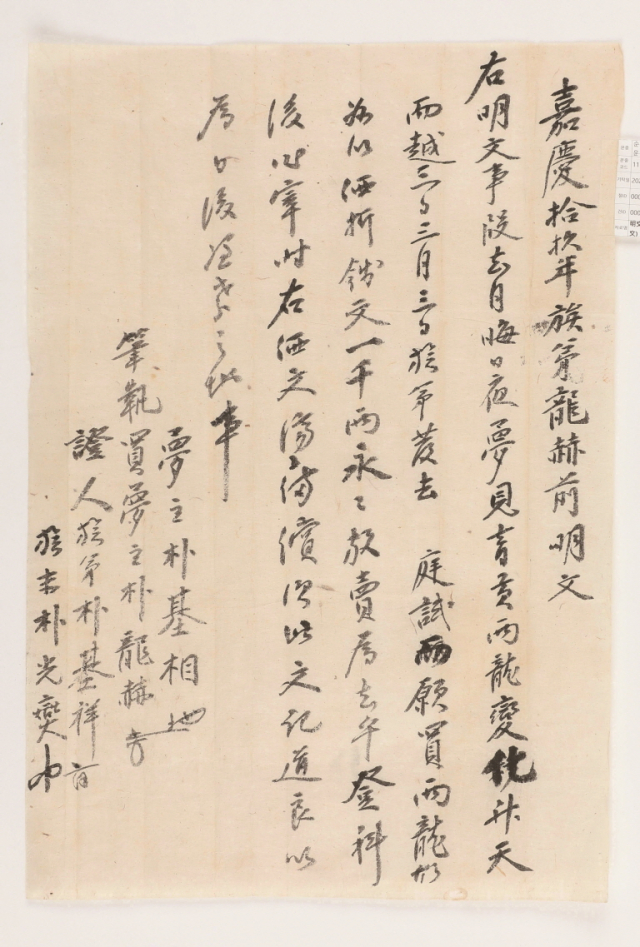 嘉慶拾玖年 族弟龍赫前明文
右明文事段去月晦日夜夢見青黃兩龍變化升天
而越三日三月三日族弟發去 庭試而願買兩龍故
價折錢文一千兩永々放賣爲去乎登科
後 宰時右價文 備償次此文記導良以
爲日後憑考之地事
夢主朴基相
筆執買夢主朴龍赫
證人族弟朴基祥
族末朴光